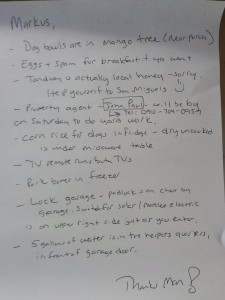 Markus,
- Dog bowls are in mango tree (near porch)
- Eggs + Spam for breakfast if you want
- Tanduay is actually local honey - sorry.
Help yourself to San Miguels
- Property agent - John Paul - will be by
Tel:
on Saturday to do yard work.
- Corn rice for dogs in fridge - dry uncooked
is under microwave table
- TV remote runs both TVs
- Pork bones in freezer
- Lock garage - padlock on chair by
garage. Switch for solar/ electric
is on upper right side just as you enter.
- 5 gallons of water is in the helpers quarters,
in front of garage door.
Thanks Man!